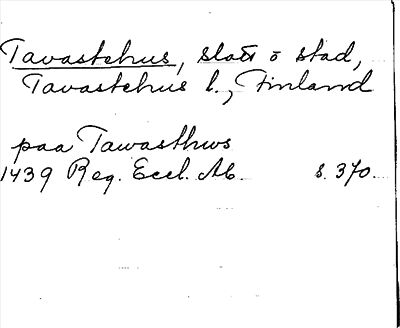 Tavastehus, slott o stad,
Tavastehus l., Finland
paa Tawasthws
1439 Reg. Eccl. Ab. s. 370.